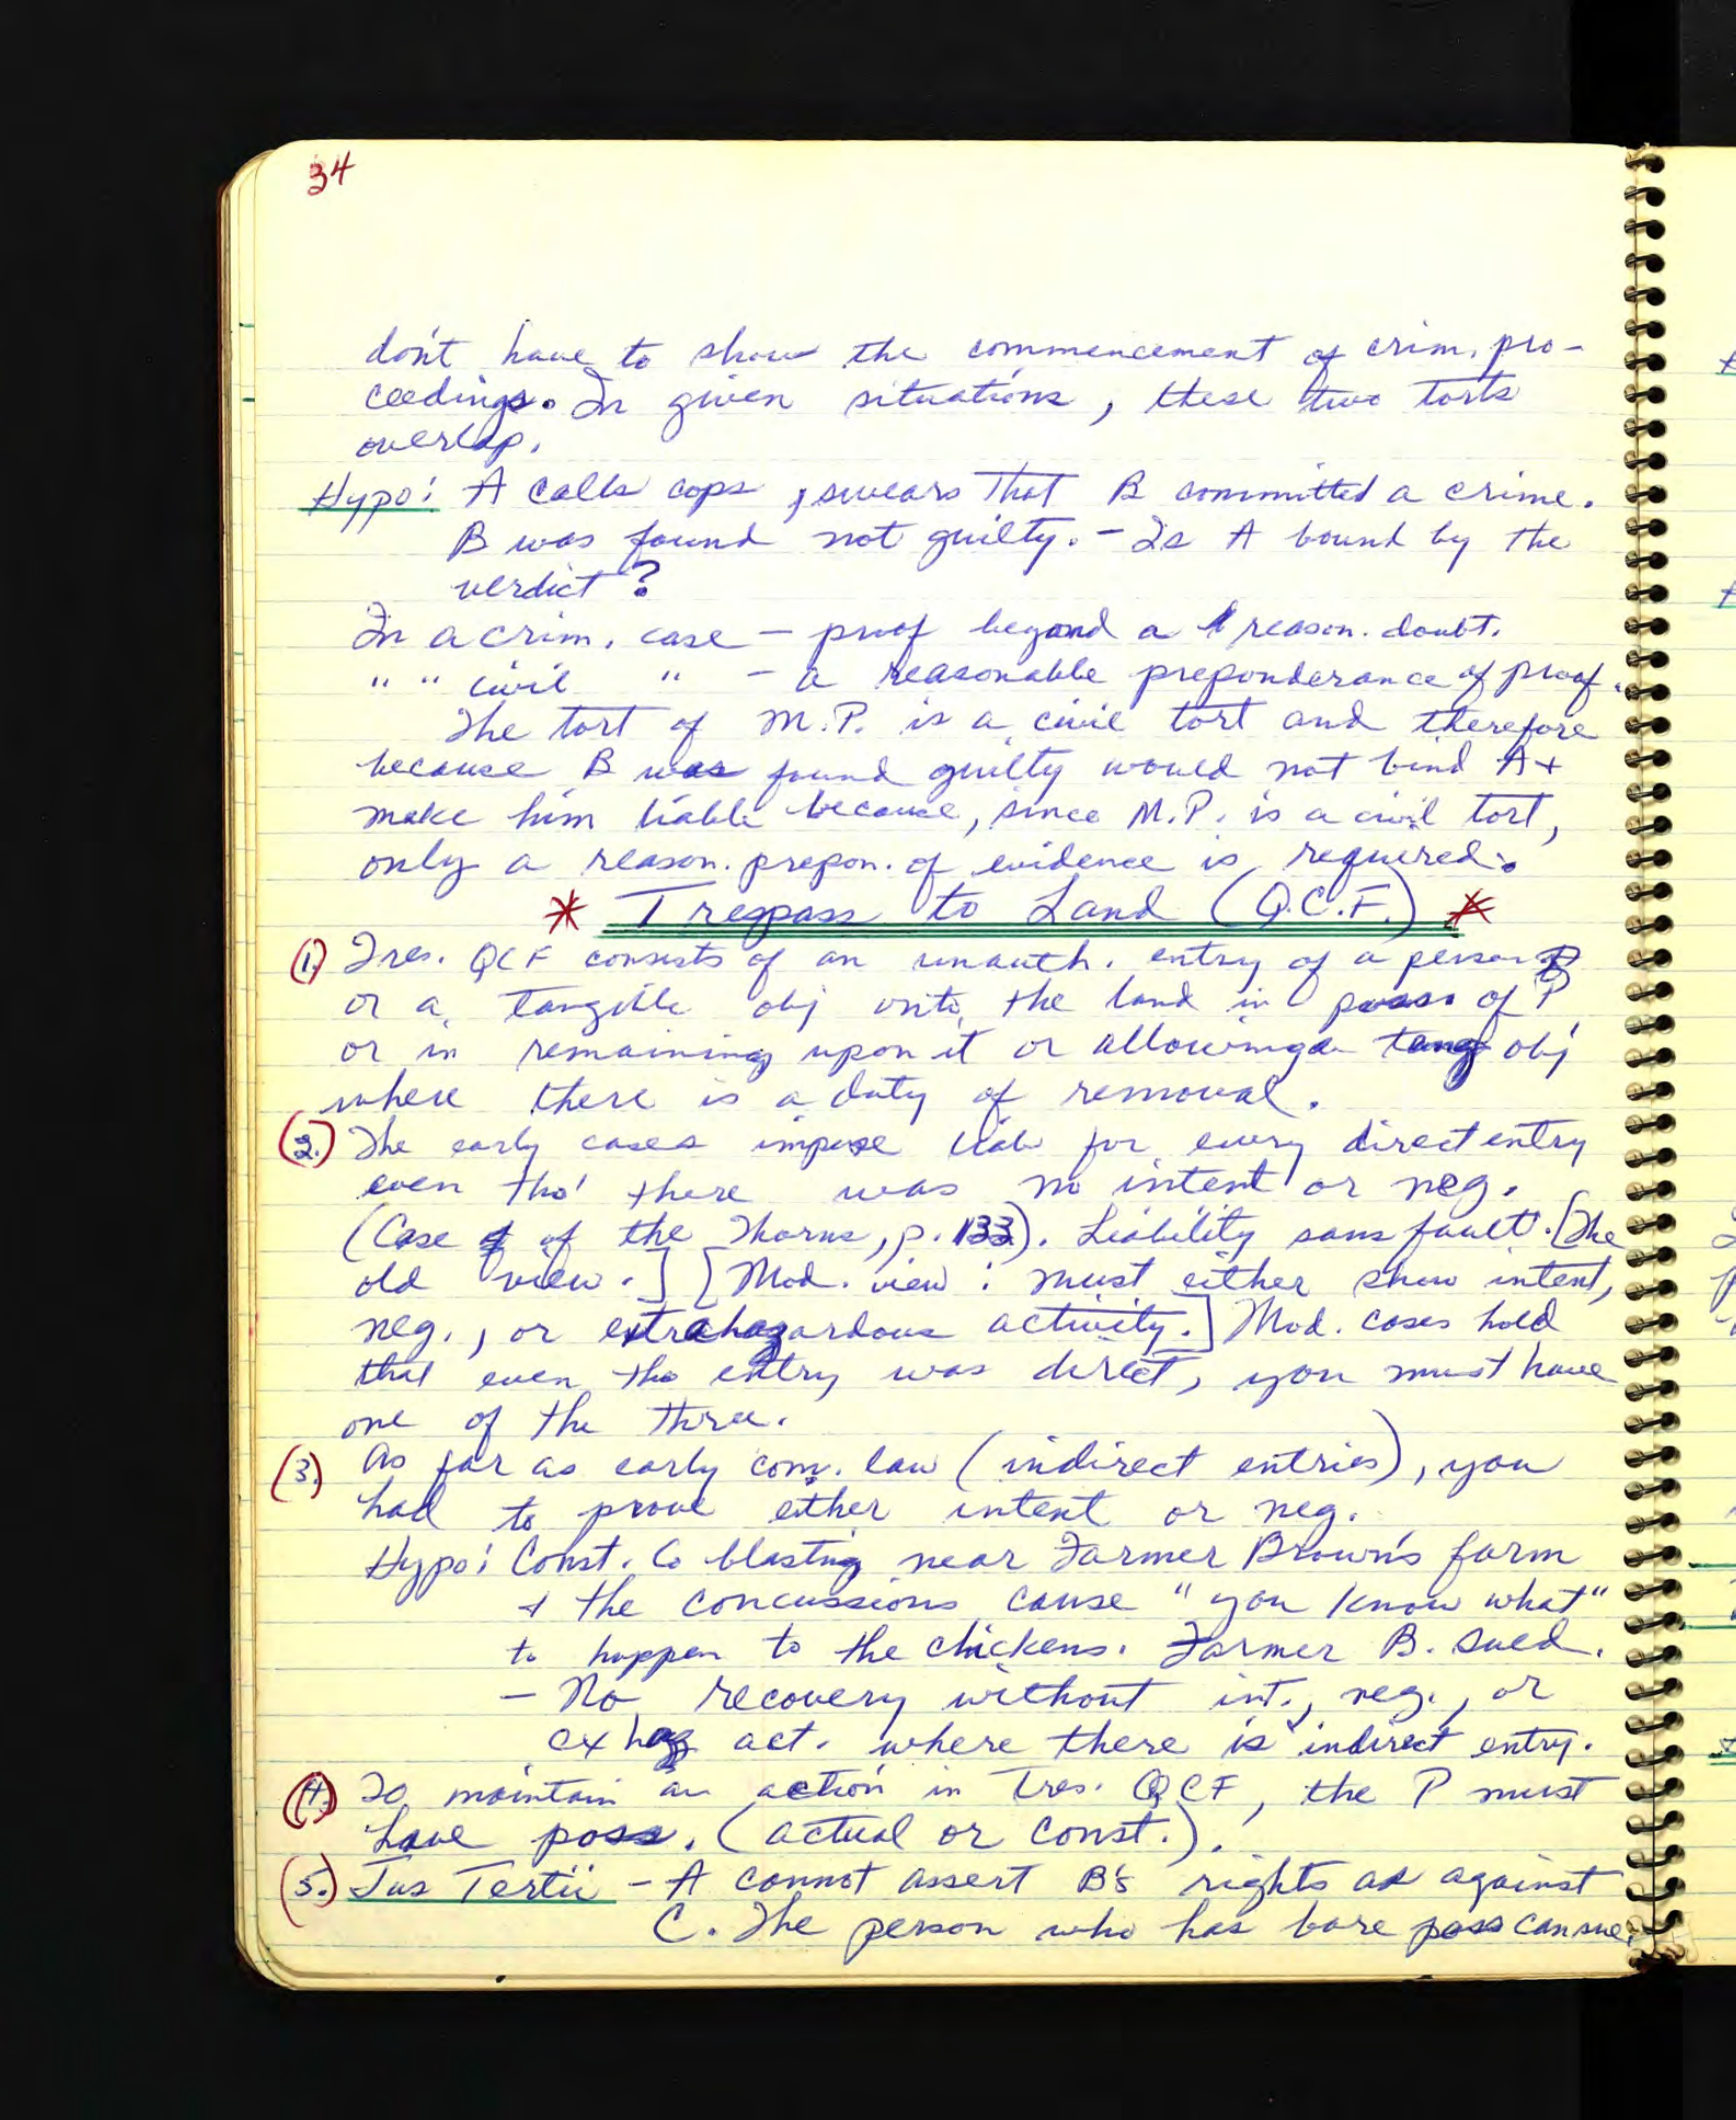 34
don't have to show the commencement of crim. pro-
ceedings. In given situations, these two torts
overlap.
Hypo: A calls cops, swears that B committed a crime.
B was found not guilty. - Is A bound by the
verdict?
In a crim. case - proof beyond a reason. doubt.
" " civil " - a reasonable preponderance of proof.
The tort of M.P. is a civil tort and therefore
because B was found guilty would not bind A +
make him liable because, since M.P. is a civil tort,
only a reason. prepon. of evidence is required.
* Trespass to Land (Q.C.F.) *
(1.) Tres. QCF consists of an unauth. entry of a person
or a tangible obj onto the land in poss. of P
or in remaining upon it or allowing a tang obj
where there is a duty of removal.
(2.) The early cases impose liab for every direct entry
even tho' there was no intent or neg.
(Case of the Thorns, p. 133). Liability sans fault. [The
old view.] [Mod. view: must either show intent,
neg., or extrahazardous activity.] Mod. cases hold
that even tho entry was direct, you must have
one of the three.
(3.) As far as early com. law (indirect entries), you
had to prove either intent or neg.
Hypo: Const. Co blasting near Farmer Brown's farm
+ the concussions cause "you know what"
to happen to the chickens. Farmer B. sued.
- No recovery without int., neg., or
ex haz act. where there is indirect entry.
(4.) To maintain an action in Tres. QCF, the P must
have poss. (actual or const.).
(5.) Jus Tertii - A cannot assert B's rights as against
C. The person who has bare poss can sue.